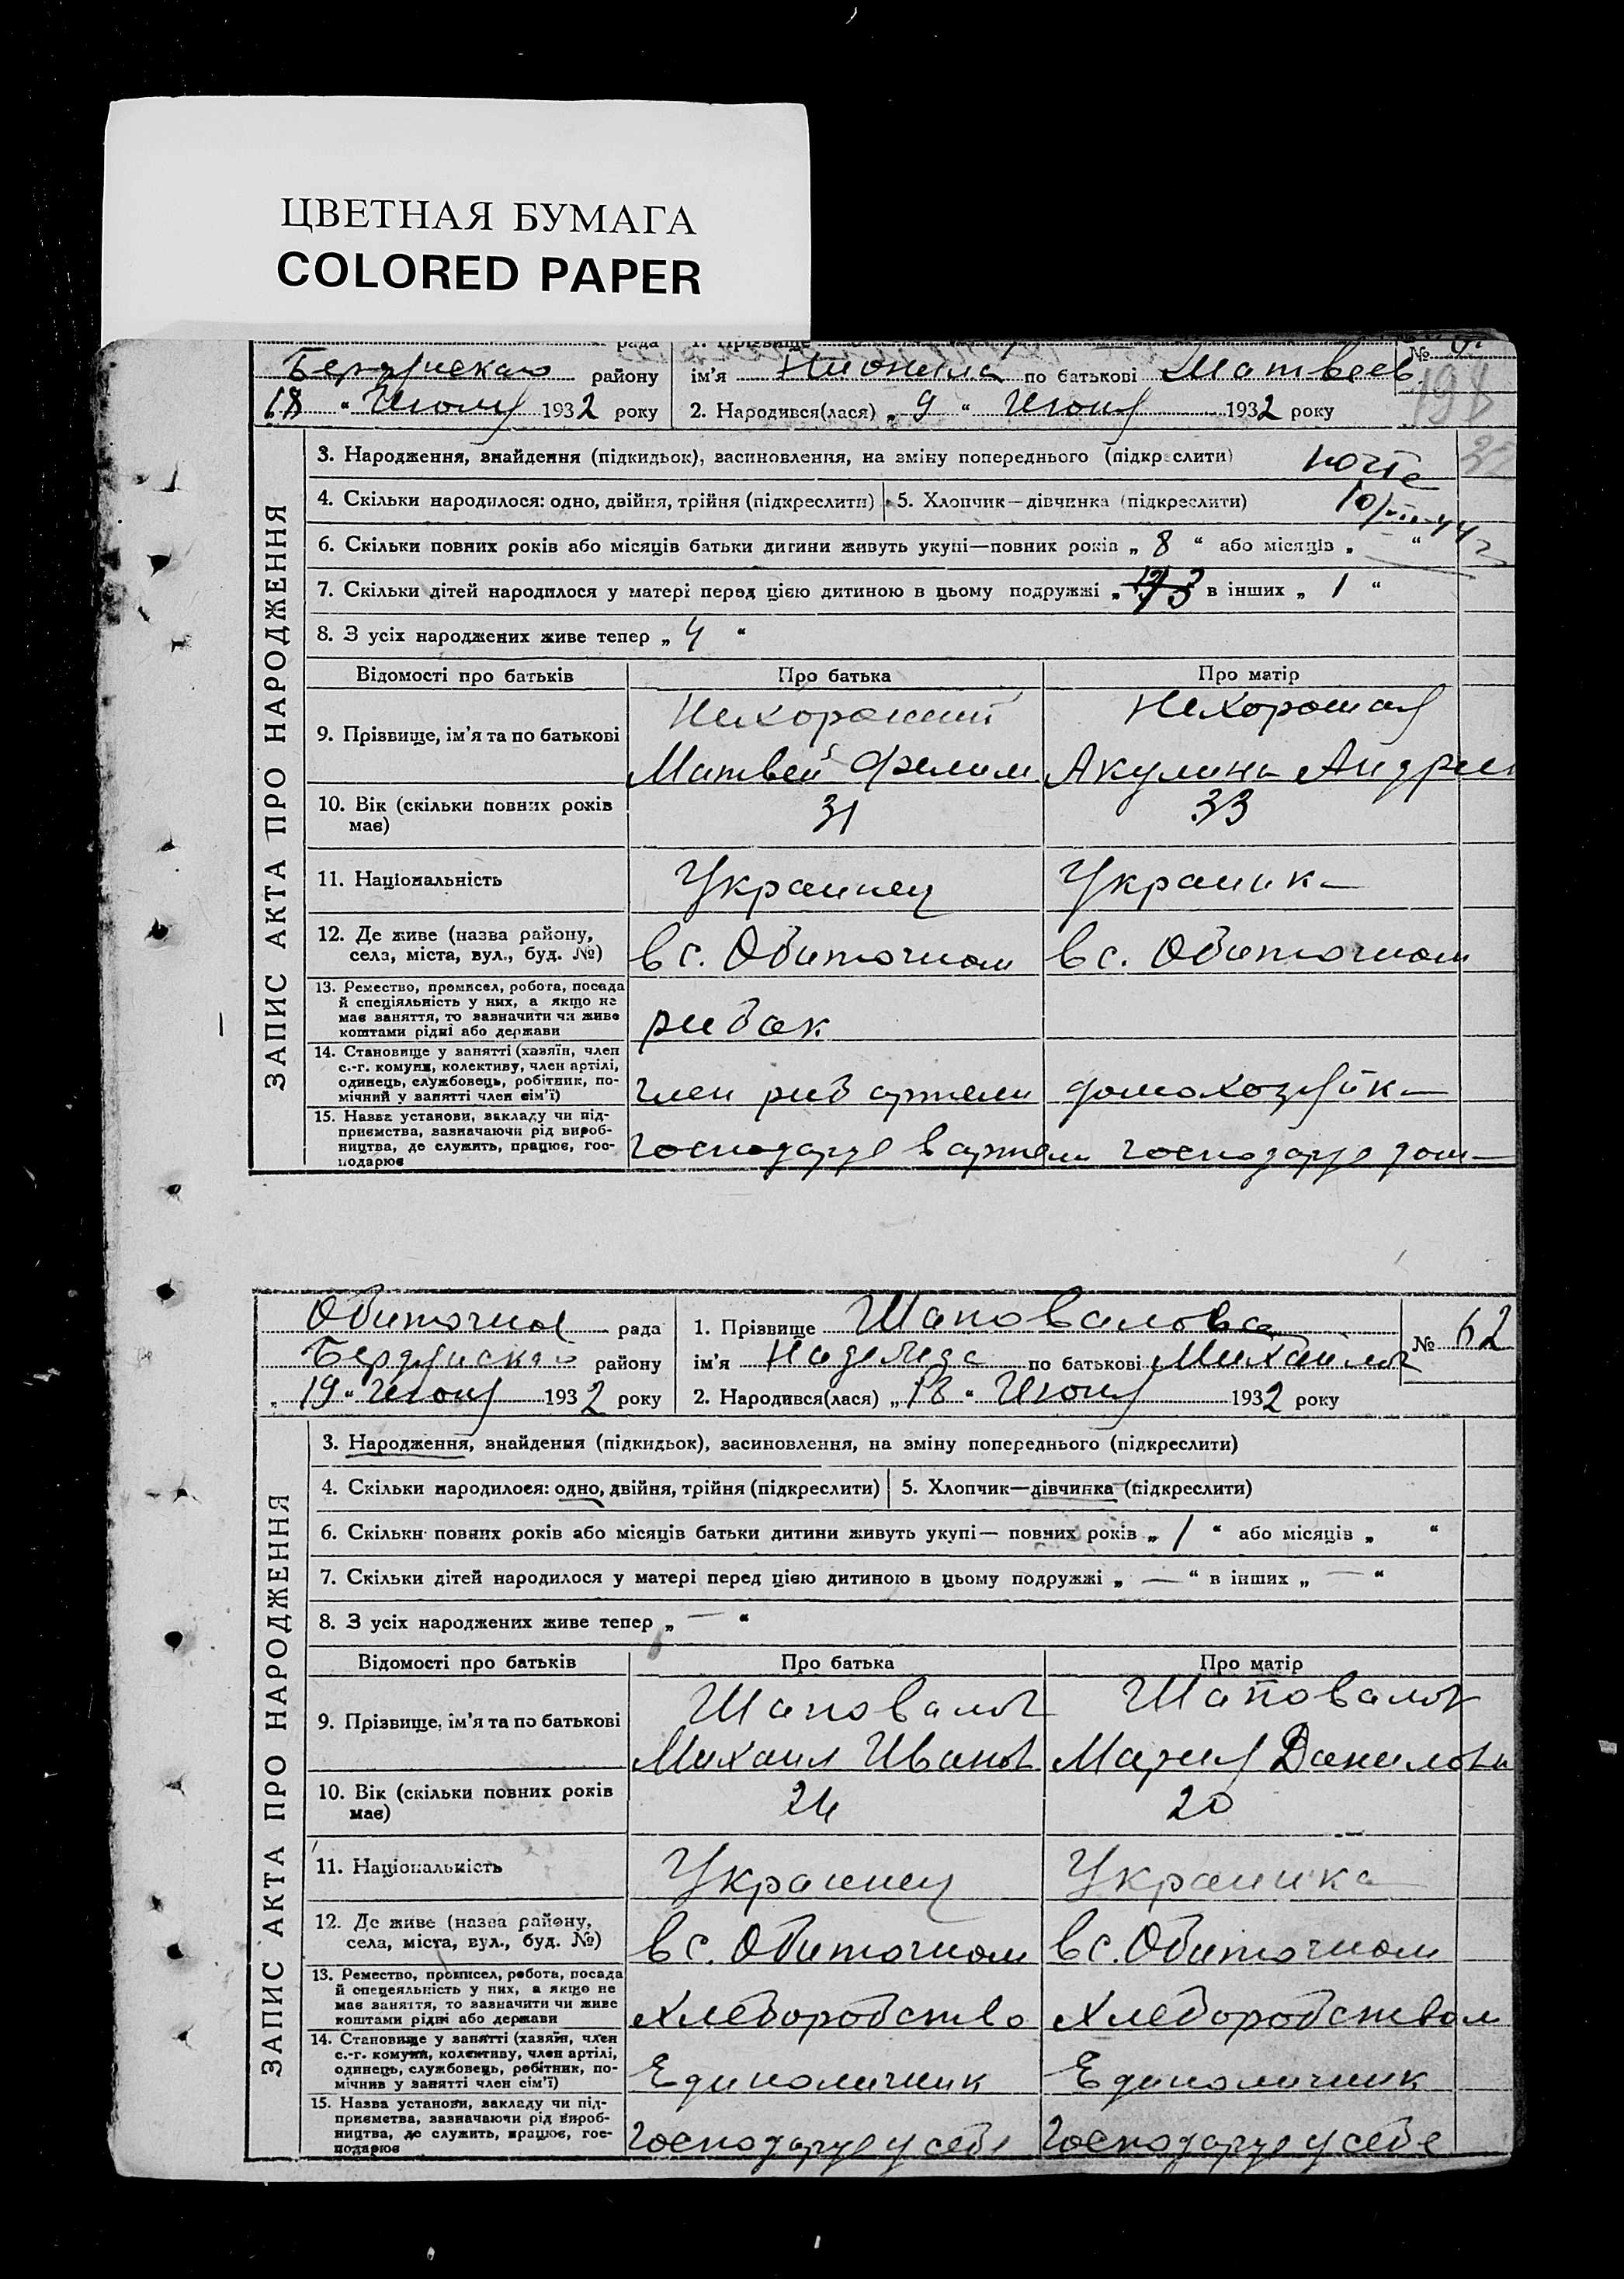 ЦВЕТНАЯ БУМАГА
COLORED PAPER
рада 1. Прізвище
Бердянского району ім’я по батькові Матвеев. №
18 " Июня 1932 року 2. Народився(лася) „ 9 " Июня 1932 року 198
ЗАПИС АКТА ПРО НАРОДЖЕННЯ
3. Народження, знайдення (підкидьок), засиновлення, на зміну попереднього (підкреслити)
4. Скільки народилося: одно, двійня, трійня (підкреслити) 5. Хлопчик—дівчинка (підкреслити)
6. Скільки повних років або місяців батьки дитини живуть укупі—повних років „ 8 " або місяців „ "
7. Скільки дітей народилося у матері перед цією дитиною в цьому подружжі „ 3 в інших „ 1 "
8. З усіх народжених живе тепер „ 4 "
Відомості про батьків Про батька Про матір
9. Прізвище, ім’я та по батькові
Нехороший Нехорошая
Матвей Филим Акулина Андреи
10. Вік (скільки повних років має) 31 33
11. Національність Украинец Украинка
12. Де живе (назва району,
села, міста, вул., буд. №) в с. Обиточном в с. Обиточном
13. Ремество, промисел, робота, посада
й спеціяльність у них, а якщо не
має заняття, то зазначити чи живе
коштами рідні або держави рибак
14. Становище у занятті (хазяїн, член
с.-г. комуни, колективу, член артілі,
одинець, службовець, робітник, по-
мічний у занятті член сім’ї) член риб артели домохозяйка
15. Назва установи, закладу чи під-
приємства, зазначаючи рід вироб-
ництва, де служить, працює, гос-
подарює Господарує в артели господарує дома
Обиточная рада 1. Прізвище Шаповалова № 62
Бердянского району ім’я Надежда по батькові Михайлов
„ 19 " Июня 1932 року 2. Народився(лася) „ 18 " Июня 1932 року
ЗАПИС АКТА ПРО НАРОДЖЕННЯ
3. Народження, знайдення (підкидьок), засиновлення, на зміну попереднього (підкреслити)
4. Скільки народилося: одно, двійня, трійня (підкреслити) 5. Хлопчик—дівчинка (підкреслити)
6. Скільки повних років або місяців батьки дитини живуть укупі— повних років „ 1 " або місяців „ "
7. Скільки дітей народилося у матері перед цією дитиною в цьому подружжі „ — " в інших „ — "
8. З усіх народжених живе тепер „ — "
Відомості про батьків Про батька Про матір
9. Прізвище, ім’я та по батькові
Шаповалов Шаповалов
Михаил Иванов Мария Данилови
10. Вік (скільки повних років має) 24 20
11. Національність Украинец Украинка
12. Де живе (назва району,
села, міста, вул., буд. №) в с. Обиточном в с. Обиточном
13. Ремество, промисел, робота, посада
й спецеяльність у них, а якщо не
має заняття, то зазначити чи живе
коштами рідні або держави хлеборобство хлеборобством
14. Становище у занятті (хазяїн, член
с.-г. комуни, колективу, член артілі,
одинець, службовець, робітник, по-
мічнив у занятті член сім’ї) Единоличник Единоличник
15. Назва установи, закладу чи під-
приємства, зазначаючи рід вироб-
ництва, де служить, працює, гос-
подарює Господарує у себе Господарує у себе